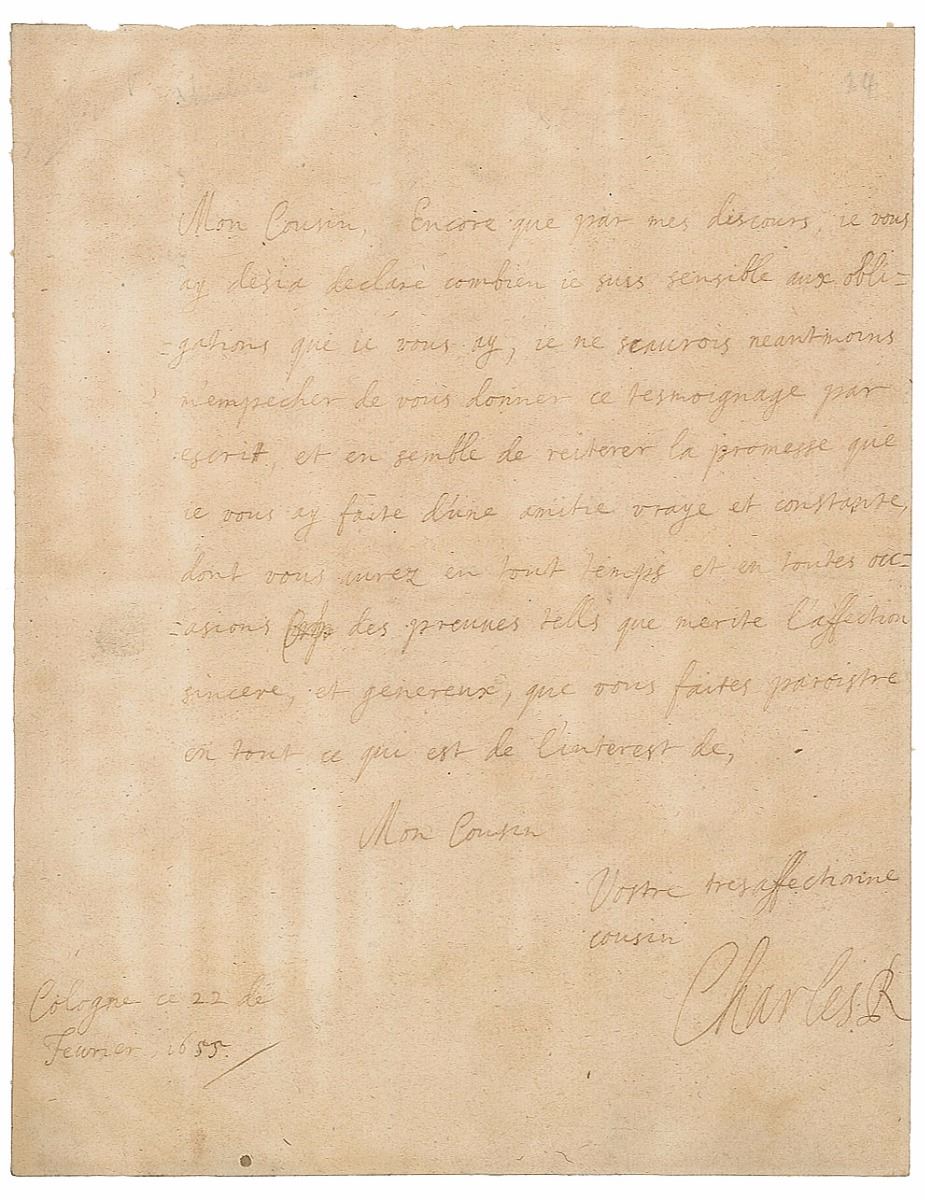 24
Mon Cousin, Encore que par mes discours, ie vous
ay desia declaré combien ie suis sensible aux obli=
=gations que ie vous ay, ie ne scaurois neantmoins
m'empecher de vous donner ce tesmoignage par
escrit, et en semble de reiterer la promesse que
ie vous ay faite d'une amitie vraye et constante,
dont vous aurez en tout temps et en toutes occ=
=asions des preuues tells que merite l'affection
sincere, et genereux, que vous faites paroistre
en tout ce qui est de l'interest de,
Mon Cousin
Vostre tresaffectionne
cousin
Charles R
Cologne ce 22 de
Feurier, 1655.